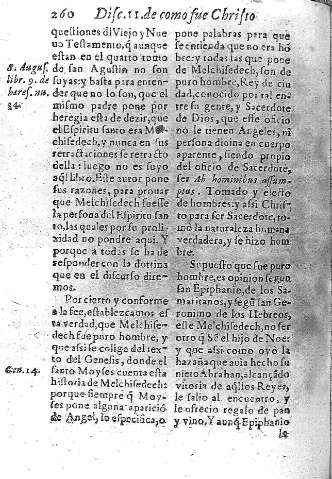 260 Disc.11.de como fue Christo
questiones dl Viejo y Nue
uo Testamento, q̃ aunque
estan en el quarto tomo
de san Agustin no son
suyas: y basta para enten-
der que no lo son, que el
mismo padre pone por
heregia esta de dezir, que
el Espiritu santo era Mel-
chisedech, y nunca en sus
retractaciones se retracto
della: luego no es suyo
aq̃l libro. Este autor pone
sus razones, para prouar
que Melchisedech fuesse
la persona del Espiritu san-
to, las quales por su proli-
xidad no pondre aqui. Y
porque a todas se ha de
responder con la dotrina
que en el discurso dire-
mos.
Por cierto y conforme
a la fee, establezcamos esta
verdad, que Melchise-
dech fue puro hombre, y
que assi se colige del tex-
to del Genesis, donde el
santo Moyses cuenta esta
historia de Melchisedech:
porque siempre q̃ Moy-
ses pone alguna aparició
de Angel, lo especifica, o
S. Augus.
libr. 9. de
hares. nu.
34.
Gen. 14.
pone palabras para que
se entienda que no era hõ
bre: y todas las que pone
de Melchisedech, son de
puro hombre, Rey de ciu
dad, conocido por tal en-
tre su gente, y Sacerdote
de Dios, que este oficio
no le tienen Angeles, ni
persona diuina en cuerpo
aparente, siendo propio
del oficio de Sacerdote,
ser Ab hominibus assum-
ptus. Tomado y electo
de hombres: y assi Chris-
to para ser Sacerdote, to-
mó la naturaleza humana
verdadera, y se hizo hom
bre.
Supuesto que fue puro
hombre, es opinion segun
san Epiphanio, de los Sa-
maritanos, y segũ san Ge-
ronimo de los Hebreos,
este Melchisedech, no ser
otro q̃ Sẽ el hijo de Noe:
y que assi como oyó la
hazaña que auia hecho su
nieto Abrahan, alcançãdo
vitoria de aq̃llos Reyes,
le salio al encuentro, y
le ofrecio regalo de pan
y vino. Y aunq̃ Epiphanio
le